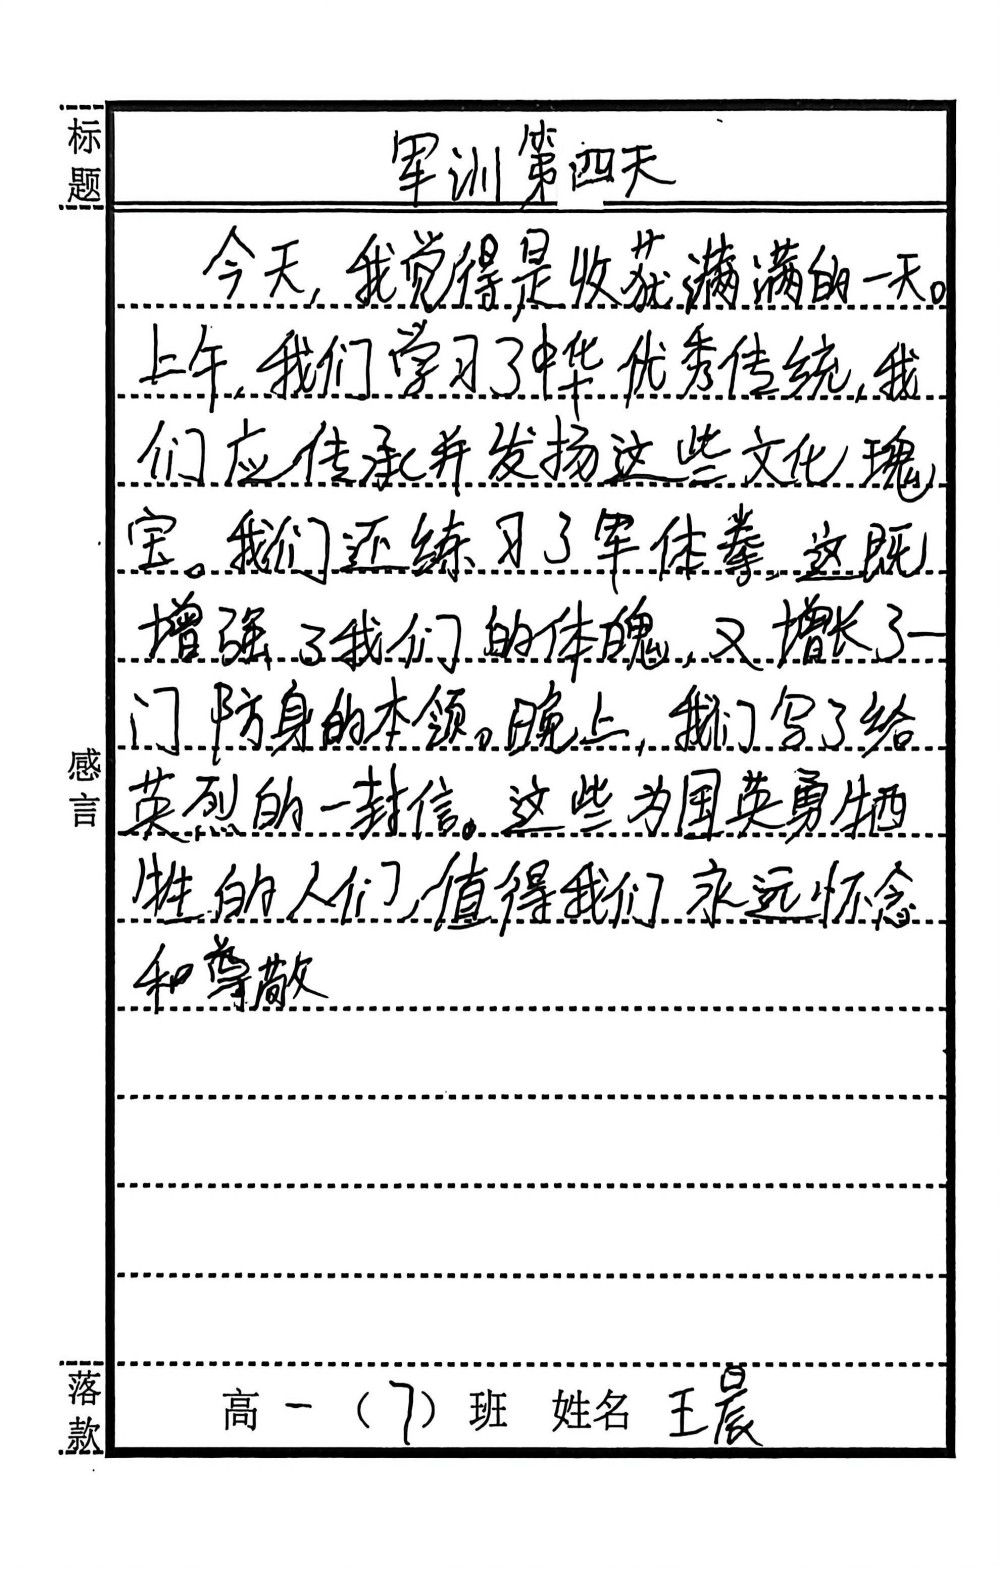 标题
军训第四天
今天,我觉得是收获满满的一天。
上午,我们学习了中华优秀传统,我
们应传承并发扬这些文化瑰
宝。我们还练习了军体拳,这既
增强了我们的体魄,又增长了一
门防身的本领。晚上,我们写了给
英烈的一封信。这些为国英勇牺
牲的人们,值得我们永远怀念
和尊敬
感言
落款
高一(7)班 姓名 王晨